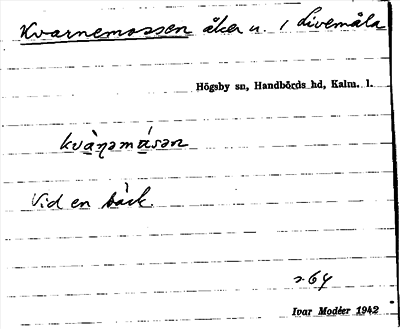 Kvarnemossen åker u. / Livemåla
Högsby sn, Handbörds hd, Kalm. l.
kvà̱ŋəmɷ́sən
Vid en bäck.
264
Ivar Modéer 1942